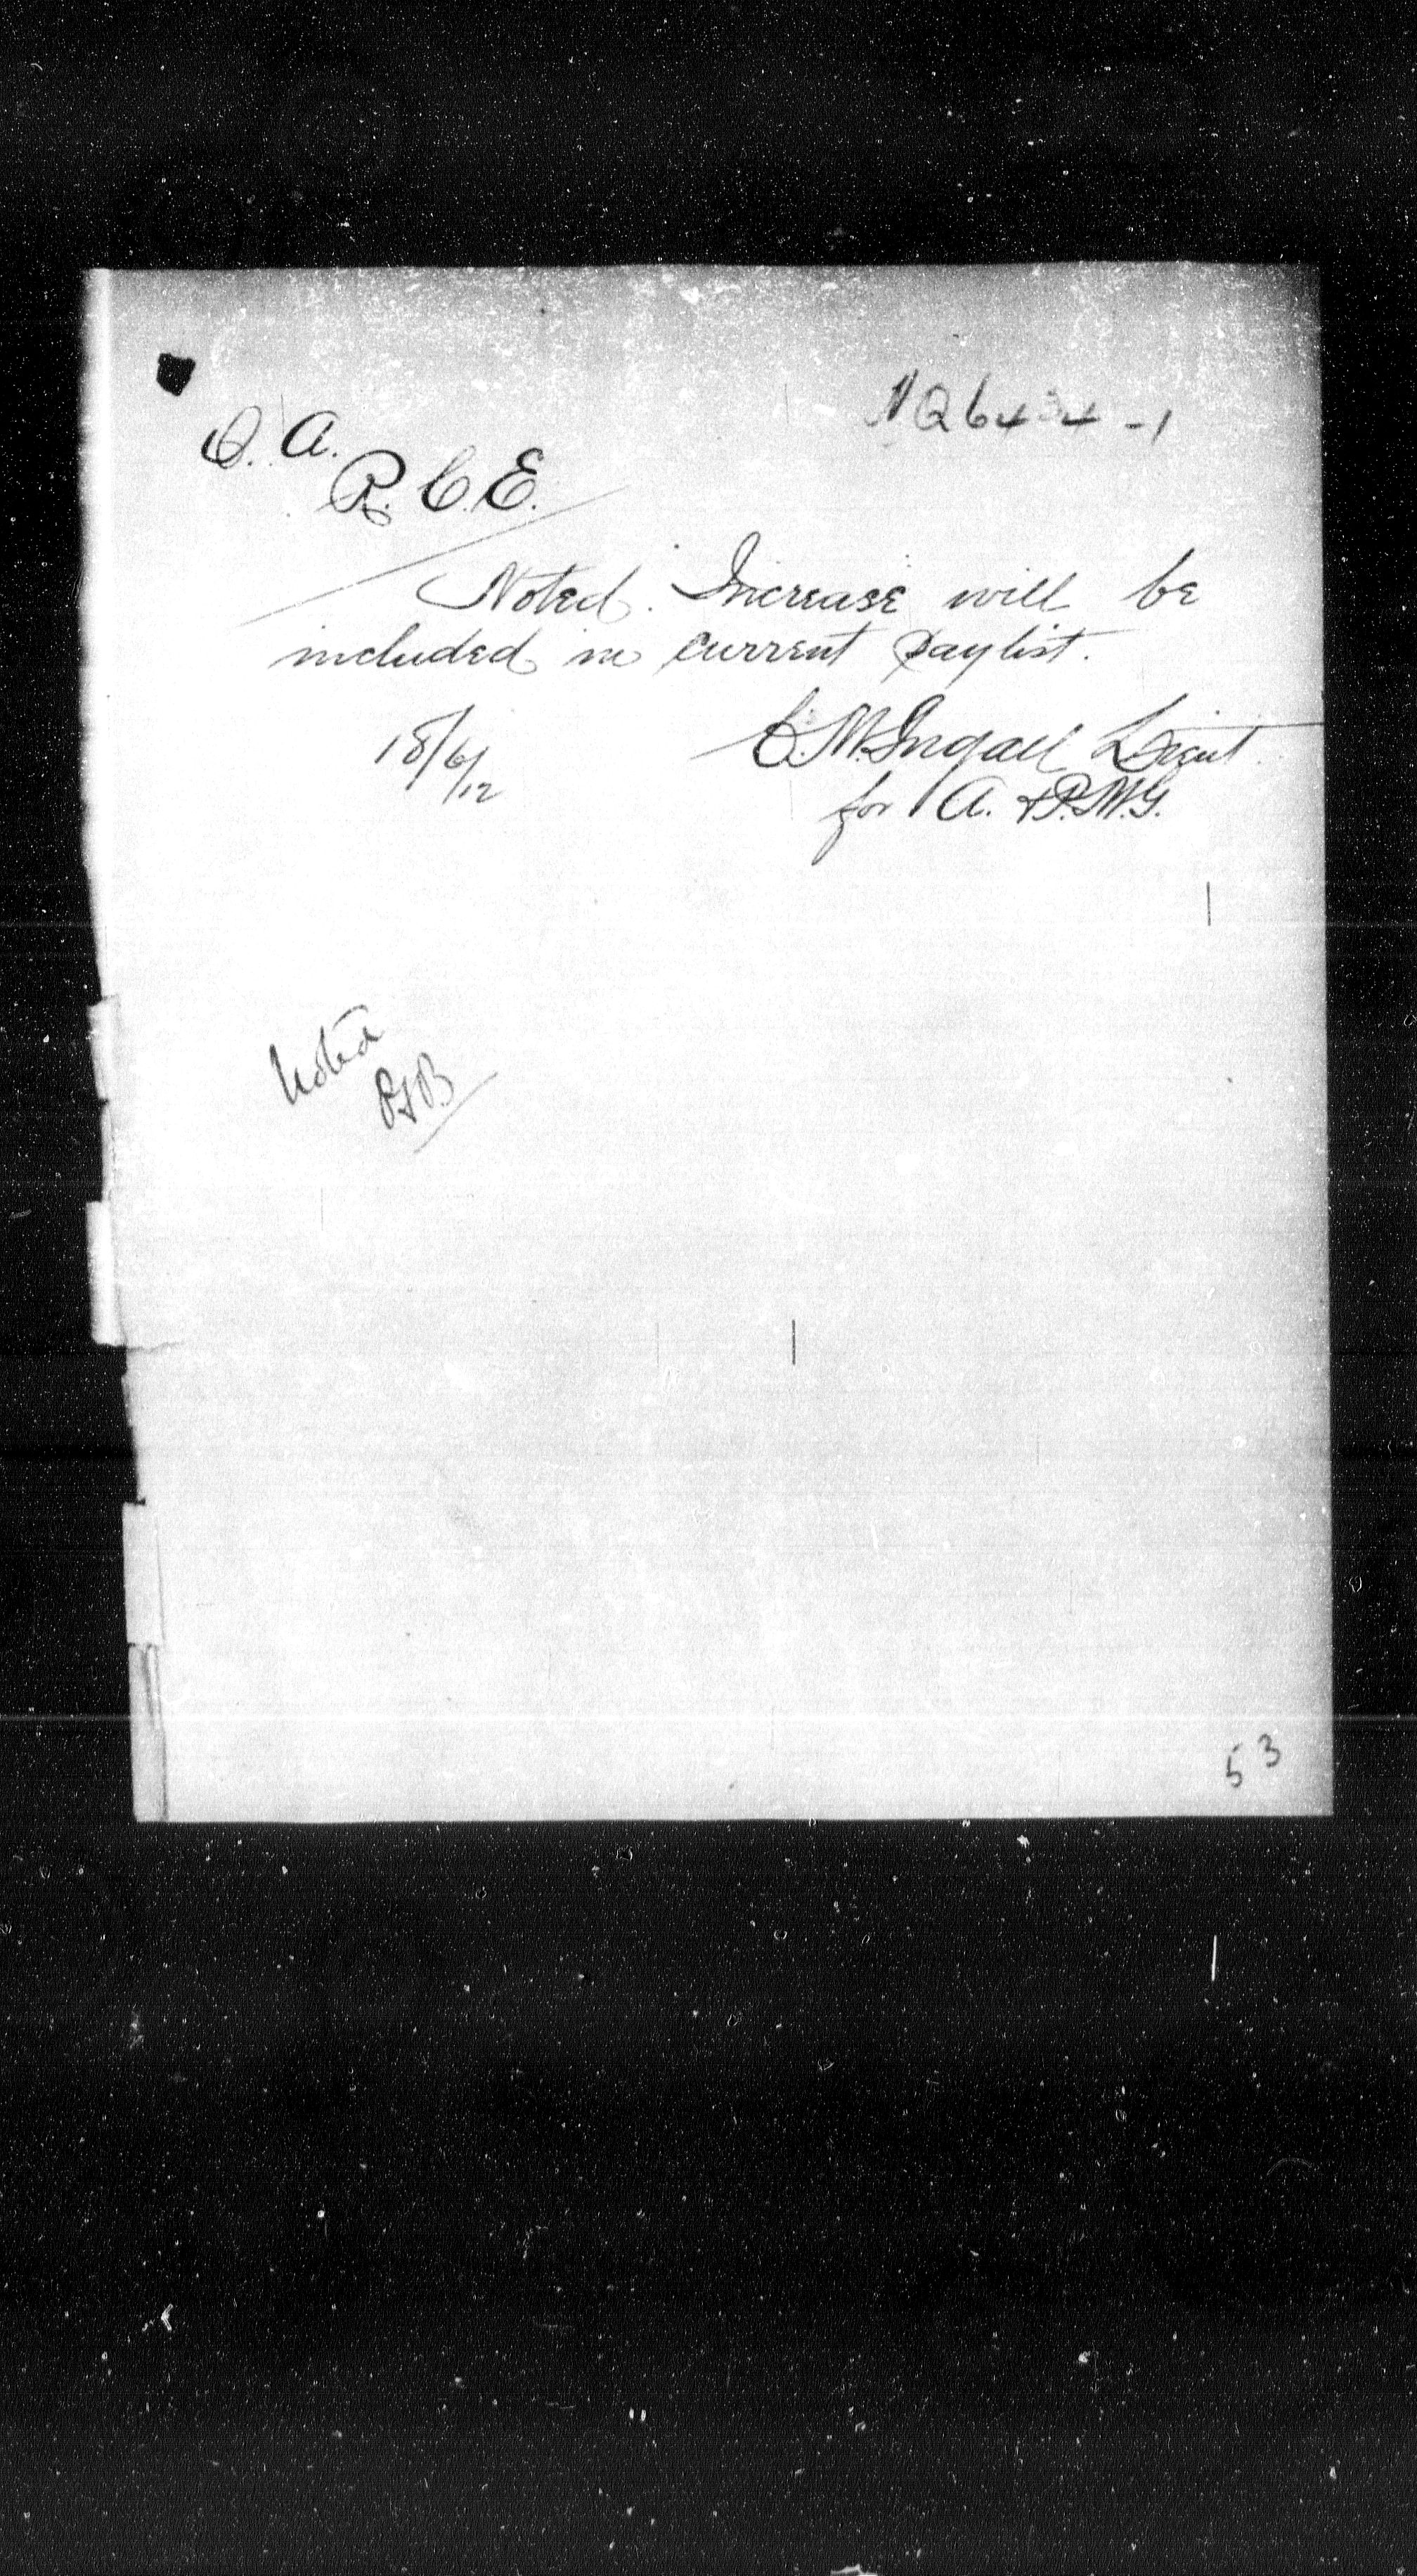 HQ 64-4-1
O. A.
R. C. E.
Noted. Increase will be
included in current paylist.
18/6/12
C. M. Ingall Lieut
for A. & P.M.G.
Noted
53